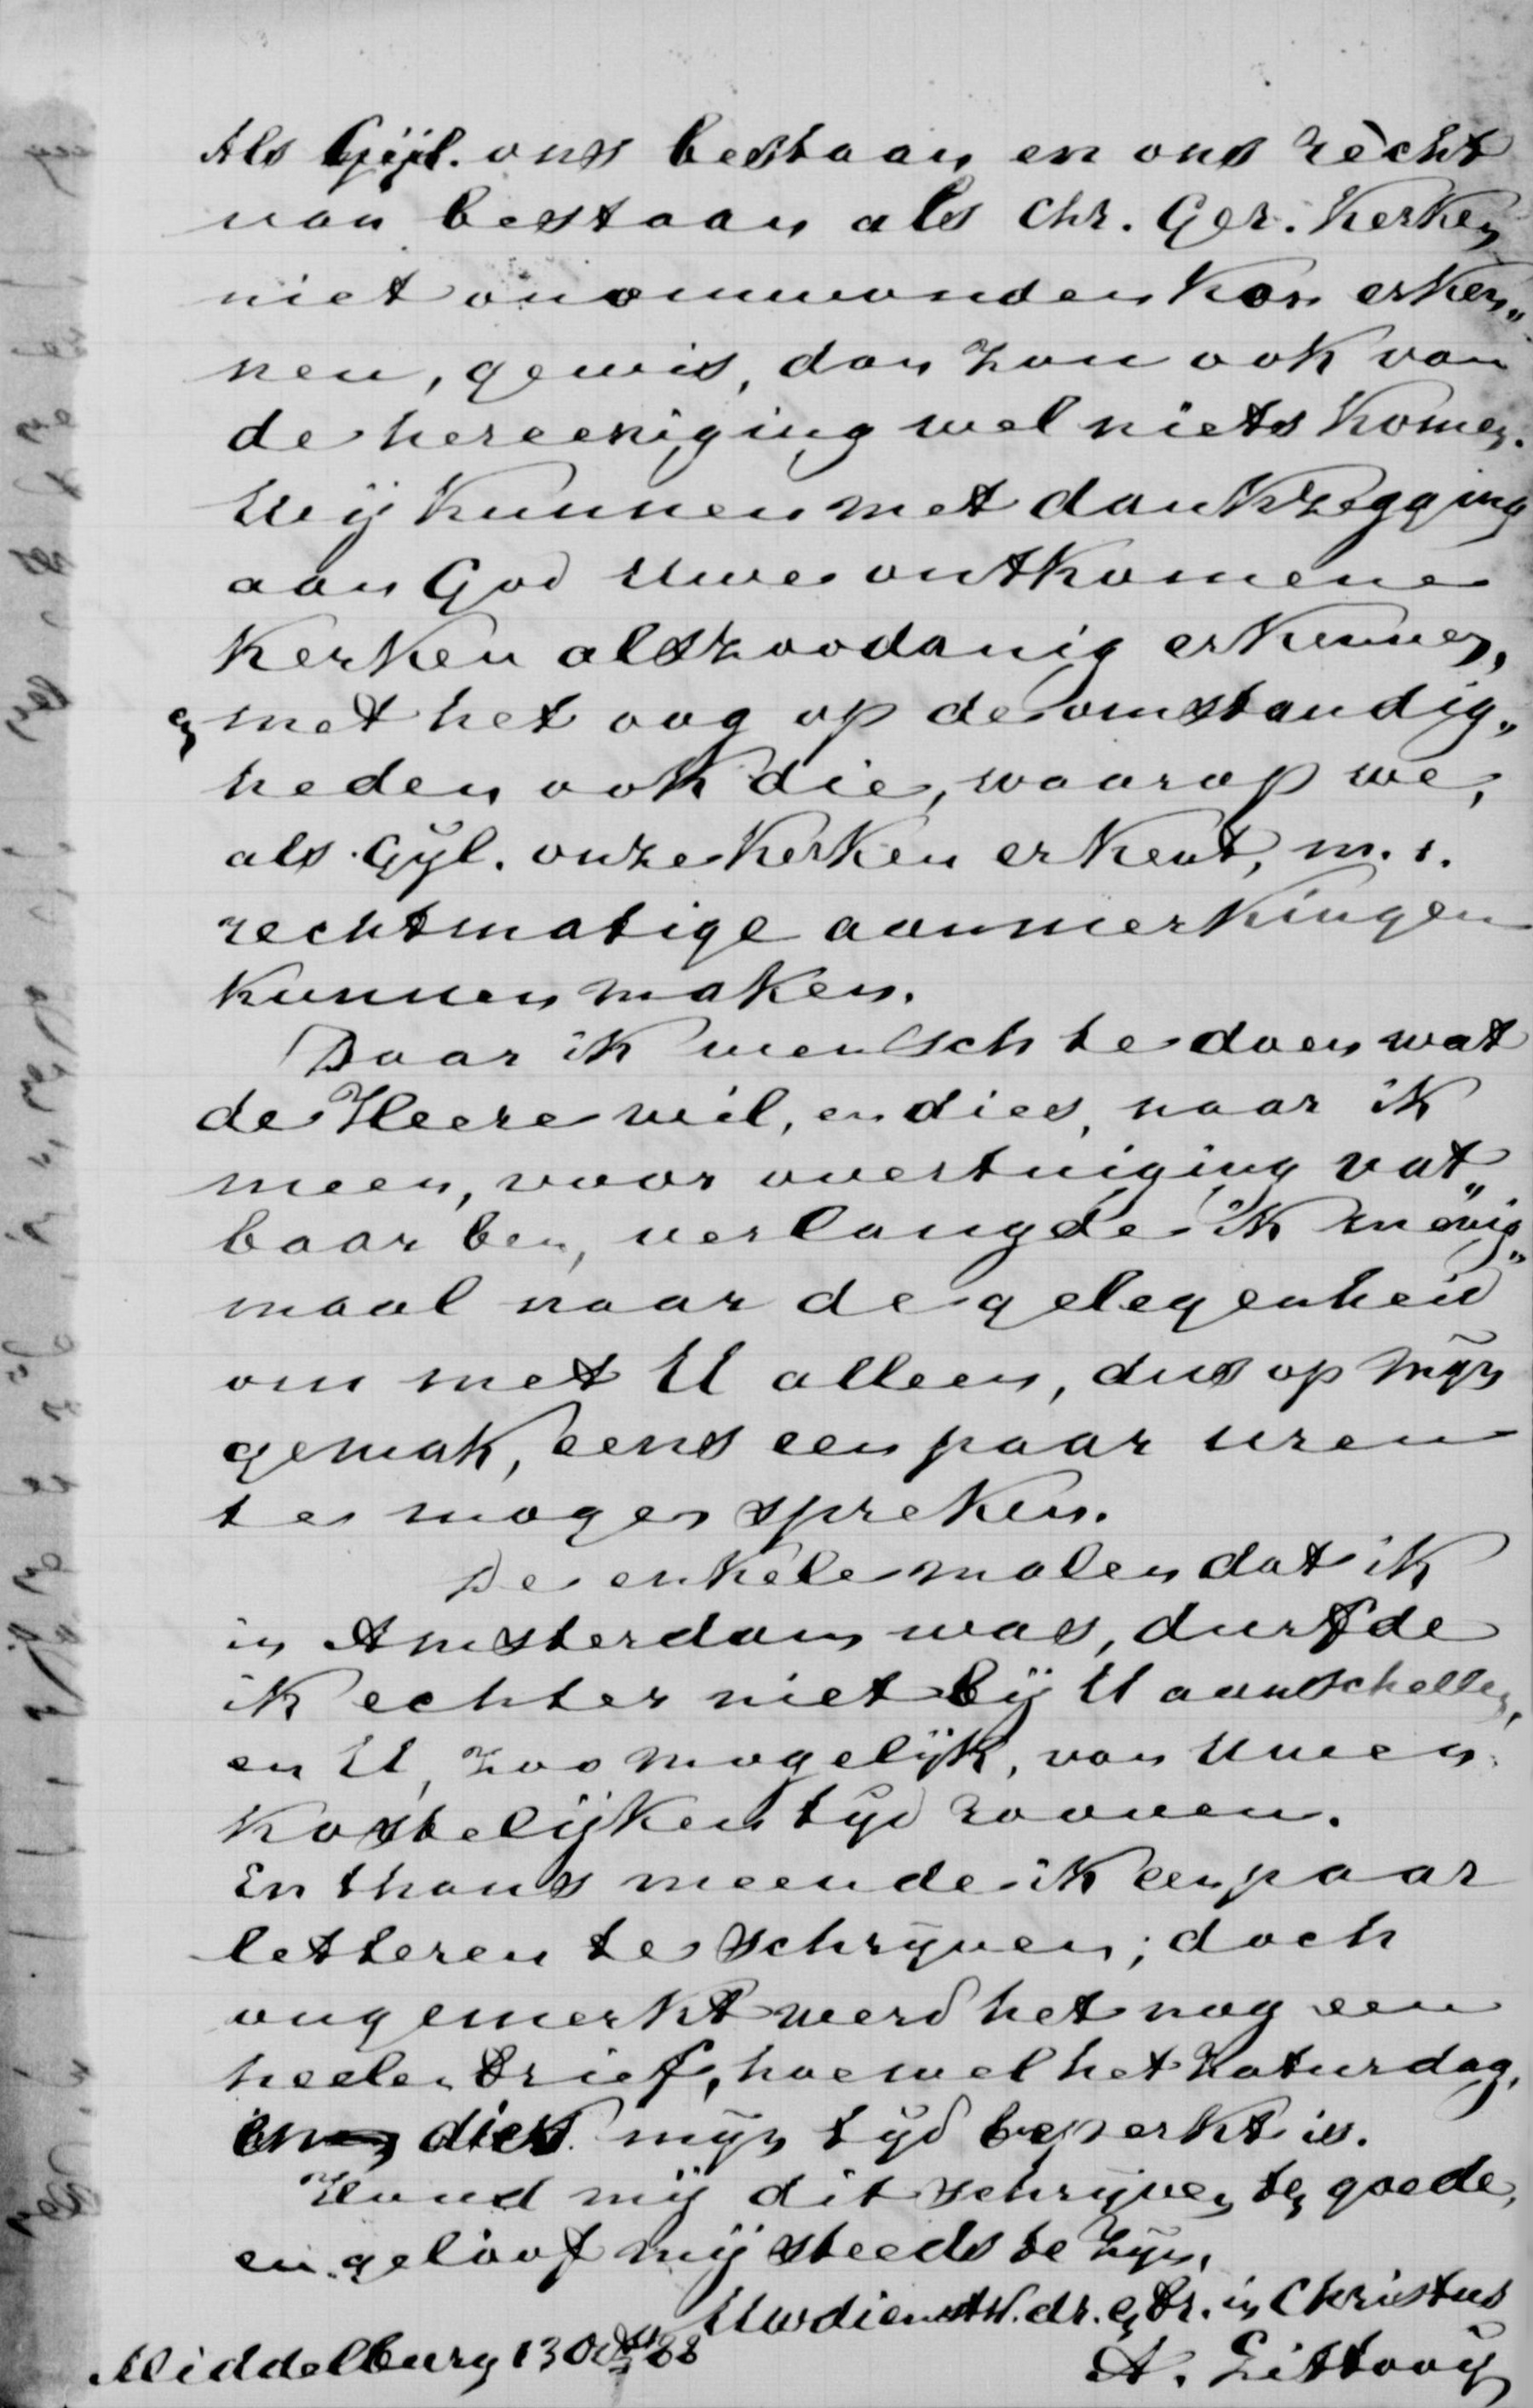 Als Gijl. ons bestaan en ons recht
van bestaan als Chr. Ger. Kerken
niet onomwonden kon erken„
nen, gewis, dan zou ook van
de hereeniging wel niets komen.
Wij kunnen met dankzegging
aan God Uwe ontkomene
Kerken als zoodanig erkennen,
en met het oog op de omstandig„
heden ook die, waarop we,
als Gijl. onze Kerken erkent, m. i.
rechtmatige aanmerkingen
kunnen maken.
Daar ik wensch te doen wat
de Heere wil, en dies, naar ik
meen, voor overtuiging vat„
baar ben, verlangde ik menig„
maal naar de gelegenheid
om met U alleen, dus op mijn
gemak, eens een paar uren
te mogen spreken.
De enkele malen dat ik
in Amsterdam was, durfde
ik echter niet bij U aanschellen,
en U, zoo mogelijk, van Uwen
kostelijken tijd rooven.
En thans meende ik een paar
letteren te schrijven; doch
ongemerkt werd het nog een
heele brief, hoewel het Zaturdag,
en dies mijn tijd beperkt is.
Houd mij dit schrijven ten goede,
en geloof mij steeds te zijn,
Uw dienstw. dr. en br. in Christus
Middelburg 13 Oct. 88
A. Littooij